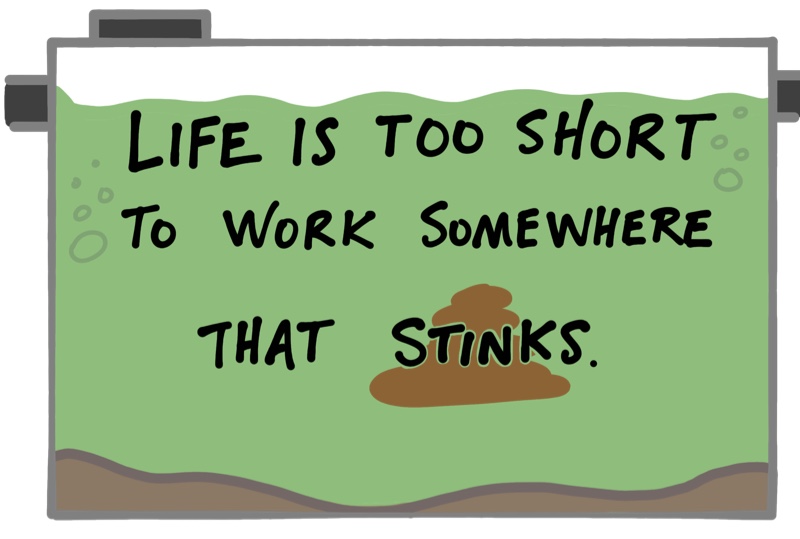 LIFE IS TOO SHORT
TO WORK SOMEWHERE
THAT STINKS.